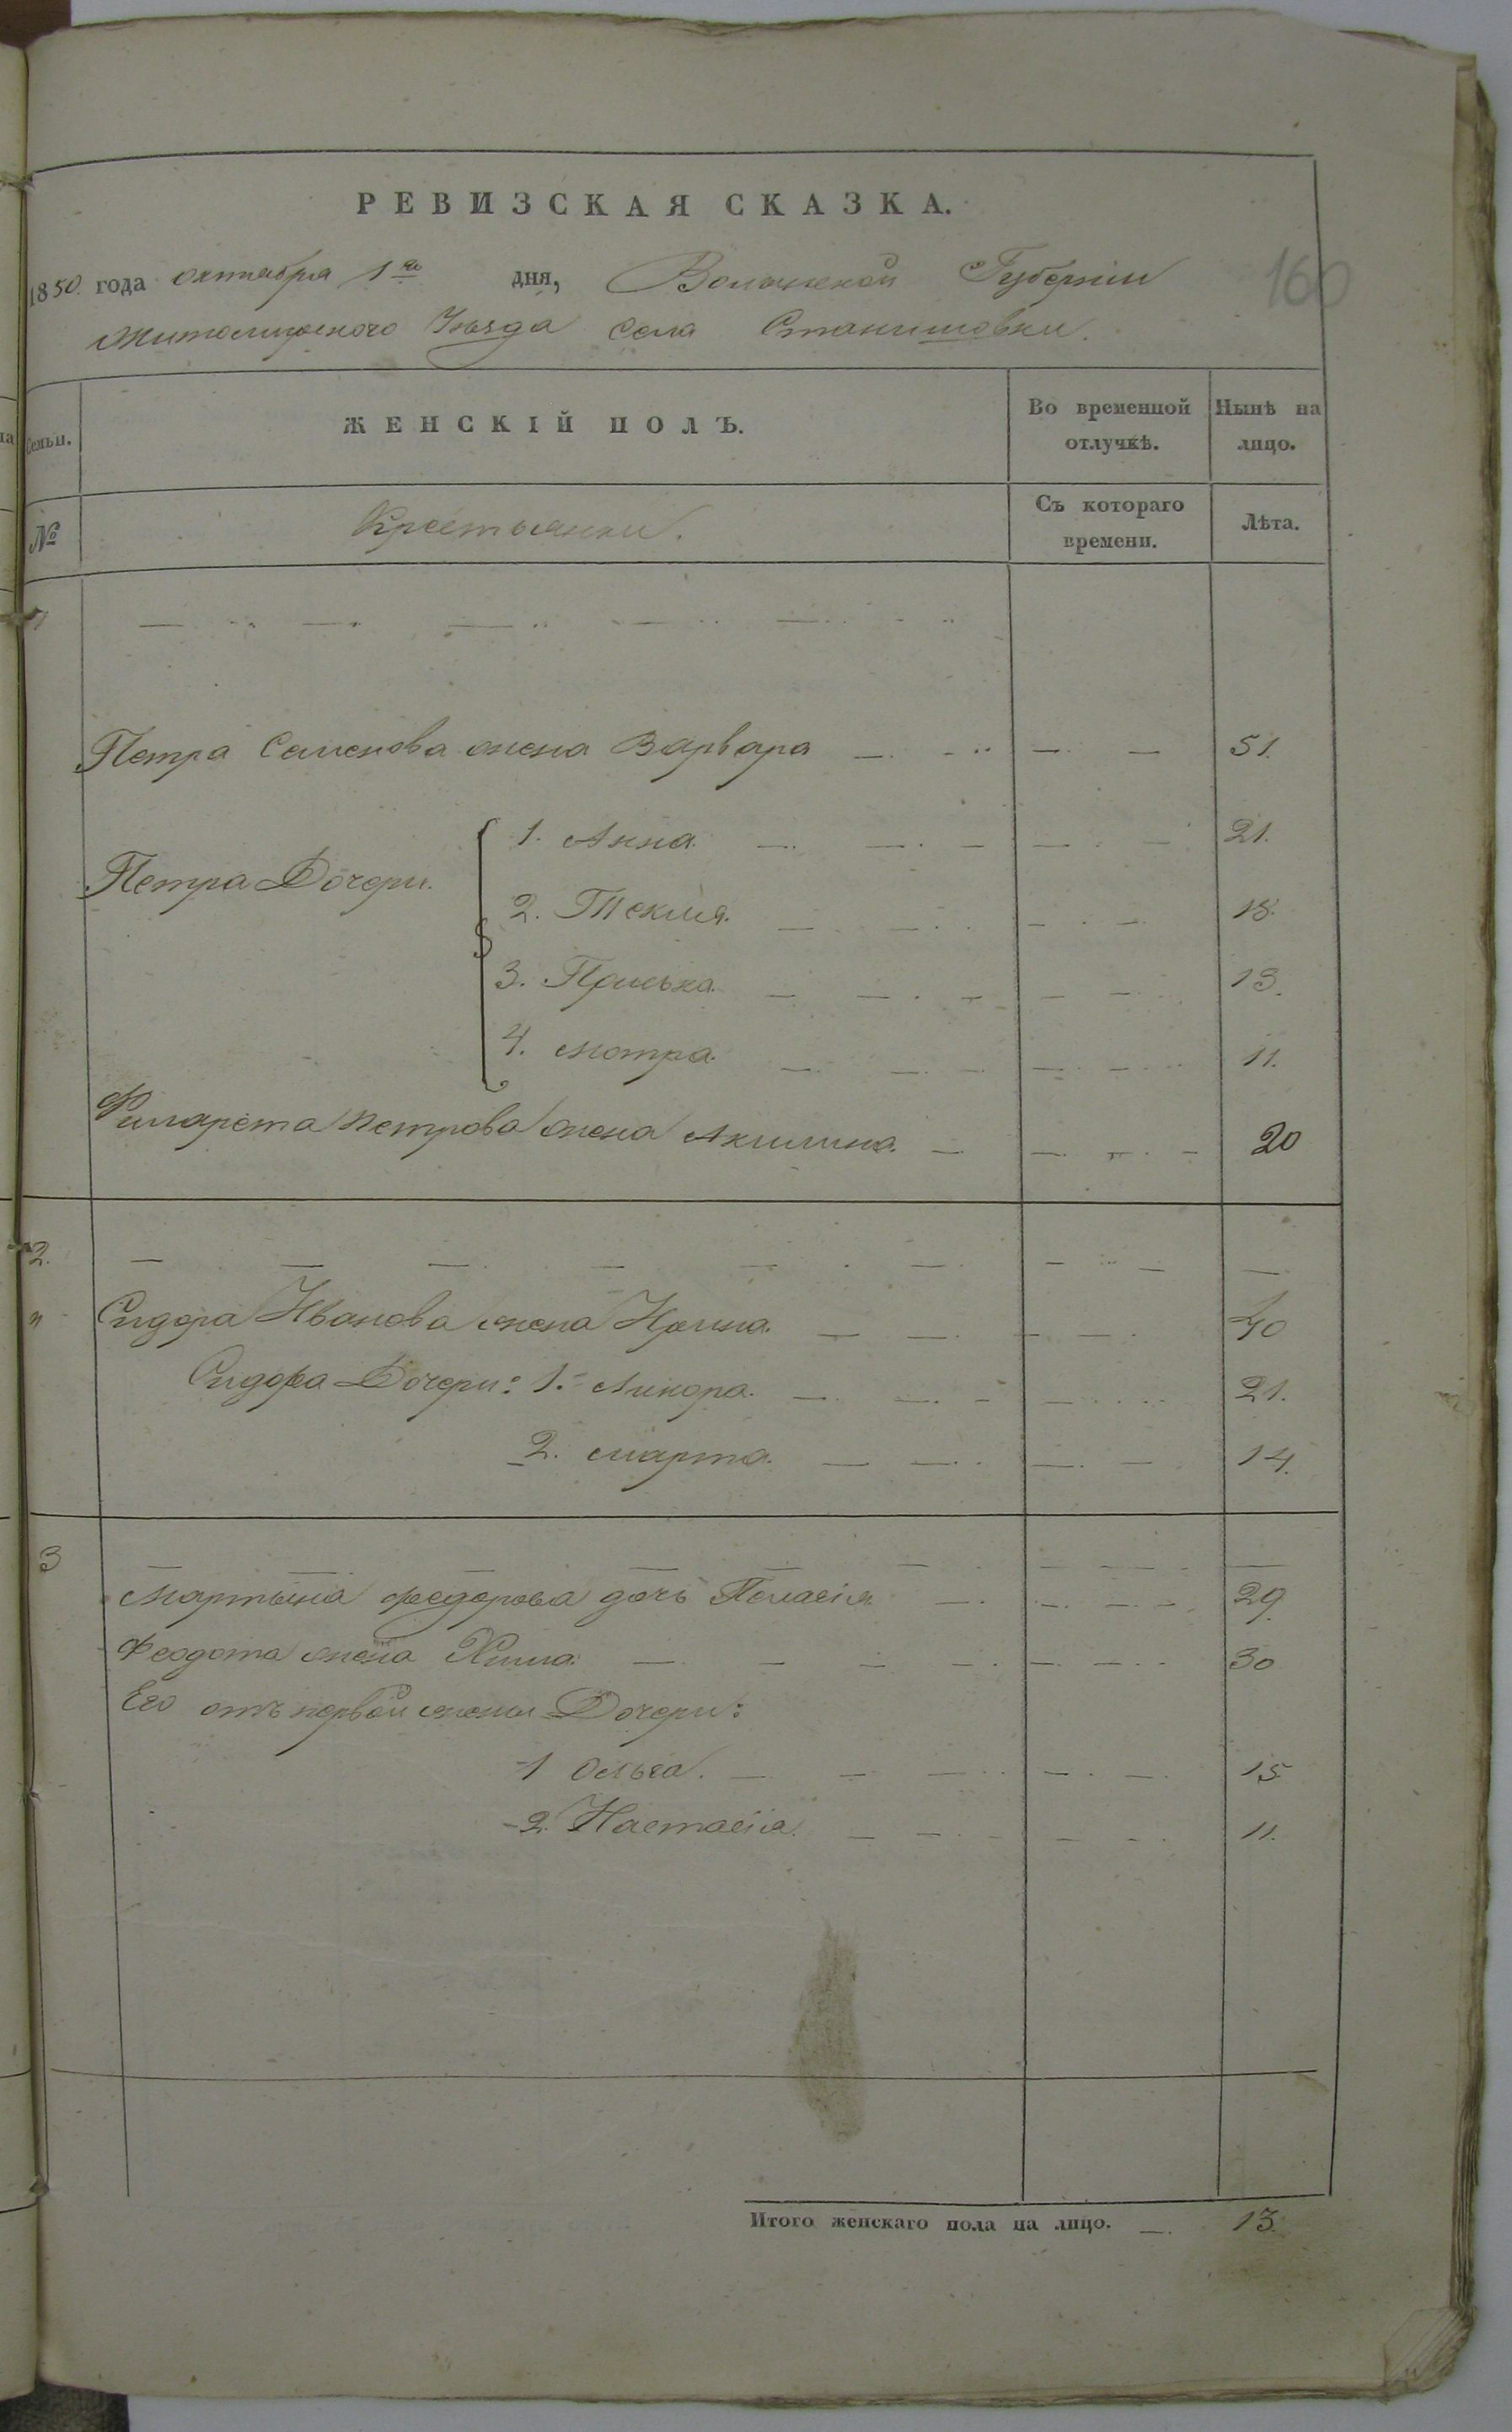 РЕВИЗСКАЯ СКАЗКА.
1850. года октября 1го дня, Волынской Губернiи
160
Житомирского Уѣзда села Станишовки.
Семьи. ЖЕНСКIЙ ПОЛЪ. Во временной отлучкѣ. Нынѣ на лицо.
№ Крестьянки. Съ котораго времени. Лѣта.
Петра Семенова жена Варвара — 51.
Петра Дочери.
1. Анна — 21.
2. Текля. — 18.
3. Приська. — 13.
4. Мотра. — 11.
Филарета Петрова жена Акилина. — 20
2.
" Сидора Иванова жена Ирина. — 40
Сидора Дочери: 1. — 21.
2. Марта. — 14.
3
Мартына Федорова дочь Пелагiя — 29.
Феодота жена — 30
Его отъ первой жены Дочери:
1 Ольга. — 15
2. Настасiя. — 11.
Итого женскаго пола на лицо. — 13.